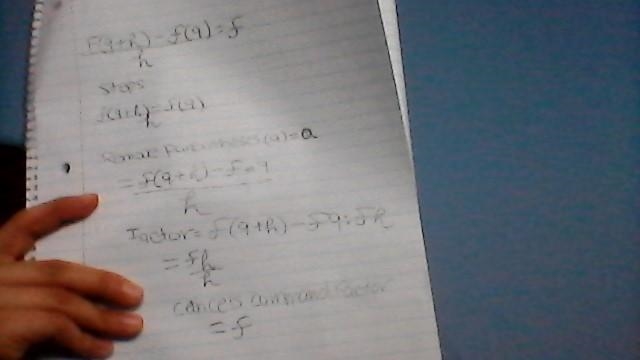 f(a+h) - f(a) = f
h
Steps
f(a+h) - f(a)
h
Remove Parentheses (a) = a
= f(a+h) - f a
h
Factor = f(a+h) - fa: fh
= fh
h
cancel common factor
= f